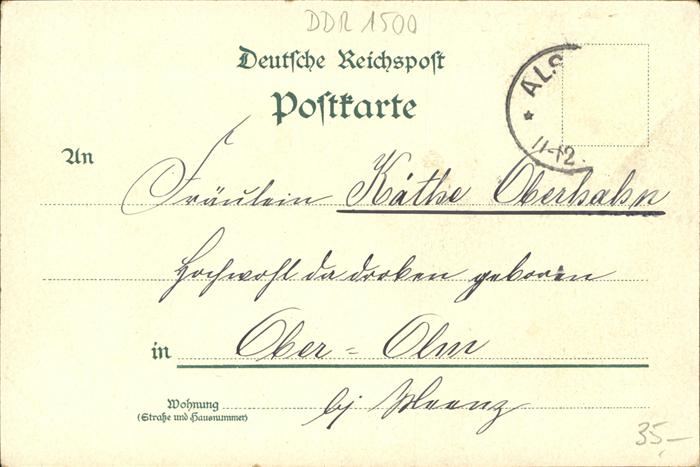 DDR 1500
Deutsche Reichspost
Postkarte
ALS
11-12.
An
Fräulein Käthe Oberhahn
Hochwohl da droben geboren
in Ober-Olm
Wohnung
(Straße und Hausnummer)
bj Meenz
35,-